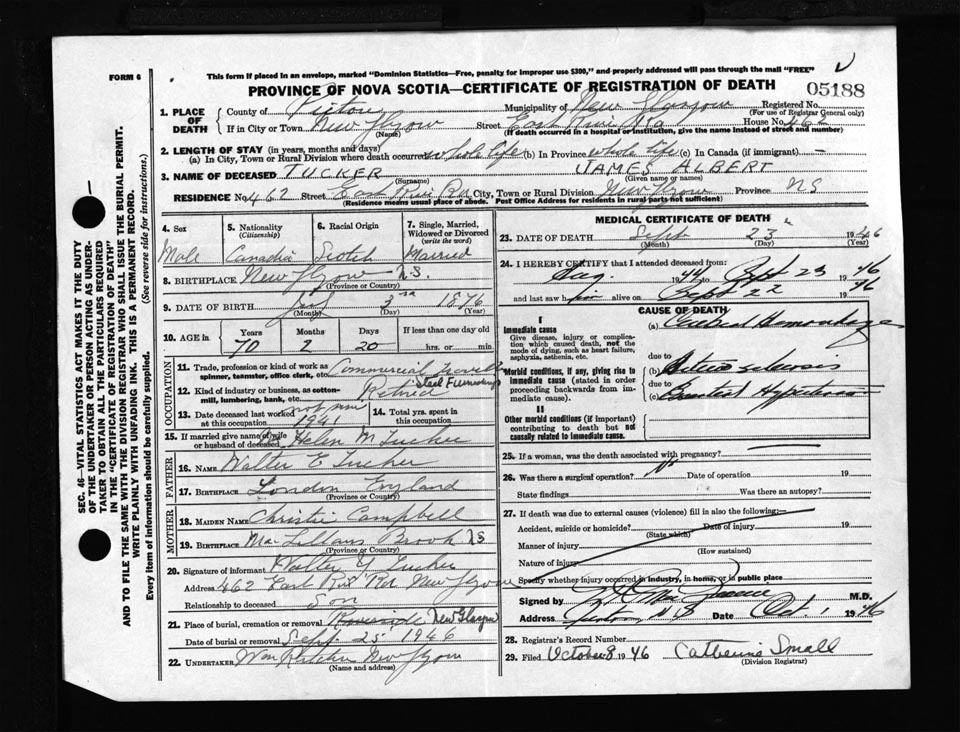 FORM 6
This form if placed in an envelope, marked "Dominion Statistics—Free, penalty for improper use $300," and properly addressed will pass through the mail "FREE"
PROVINCE OF NOVA SCOTIA—CERTIFICATE OF REGISTRATION OF DEATH
05188
1. PLACE OF DEATH
County of Pictou Municipality of New Glasgow Registered No.
(For use of Registrar General only)
If in City or Town New Glasgow Street East River Rd House No. 462
(Name) (If death occurred in a hospital or institution, give the name instead of street and number)
2. LENGTH OF STAY (in years, months and days)
(a) In City, Town or Rural Division where death occurred whole life (b) In Province whole life (c) In Canada (if immigrant) —
3. NAME OF DECEASED TUCKER JAMES ALBERT
(Surname) (Given name or names)
RESIDENCE No. 462 Street East River Rd City, Town or Rural Division New Glasgow Province NS
(Residence means usual place of abode. Post Office Address for residents in rural parts not sufficient)
SEC. 46—VITAL STATISTICS ACT MAKES IT THE DUTY
OF THE UNDERTAKER OR PERSON ACTING AS UNDER-
TAKER TO OBTAIN ALL THE PARTICULARS REQUIRED
IN THE "CERTIFICATE OF REGISTRATION OF DEATH"
AND TO FILE THE SAME WITH THE DIVISION REGISTRAR WHO SHALL ISSUE THE BURIAL PERMIT.
WRITE PLAINLY WITH UNFADING INK. THIS IS A PERMANENT RECORD.
Every item of information should be carefully supplied. (See reverse side for instructions.)
4. Sex 5. Nationality (Citizenship) 6. Racial Origin 7. Single, Married, Widowed or Divorced (write the word)
Male Canadian Scotch Married
8. BIRTHPLACE New Glasgow N.S.
(Province or Country)
9. DATE OF BIRTH July 3rd 1876
(Month) (Day) (Year)
10. AGE in Years Months Days If less than one day old
70 2 20 hrs. or min
OCCUPATION
11. Trade, profession or kind of work as spinner, teamster, office clerk, etc. Commercial Traveller
12. Kind of industry or business, as cotton-mill, lumbering, bank, etc. Retired Steel
13. Date deceased last worked at this occupation 1941
14. Total yrs. spent in this occupation
15. If married give name of wife or husband of deceased Helen M Tucker
FATHER
16. NAME Walter E Tucker
17. BIRTHPLACE London England
(Province or Country)
MOTHER
18. MAIDEN NAME Christie Campbell
19. BIRTHPLACE MacLellans Brook NS
(Province or Country)
20. Signature of informant Walter Tucker
Address 462 East River Rd New Glasgow
Relationship to deceased Son
21. Place of burial, cremation or removal Riverside New Glasgow
Date of burial or removal Sept. 25 1946
22. UNDERTAKER New Glasgow
(Name and address)
MEDICAL CERTIFICATE OF DEATH
23. DATE OF DEATH Sept 23 1946
(Month) (Day) (Year)
24. I HEREBY CERTIFY that I attended deceased from:
Aug. 1944 to Sept 23 1946
and last saw him alive on Sept 22 1946
CAUSE OF DEATH
I
Immediate cause
Give disease, injury or complication which caused death, not the mode of dying, such as heart failure, asphyxia, asthenia, etc.
(a) Cerebral Hemorrhage
due to
Morbid conditions, if any, giving rise to immediate cause (stated in order proceeding backwards from immediate cause).
(b) Arterio sclerosis
due to
(c) Hypertension
II
Other morbid conditions (if important) contributing to death but not causally related to immediate cause.
25. If a woman, was the death associated with pregnancy?
26. Was there a surgical operation? No Date of operation 19
State findings Was there an autopsy?
27. If death was due to external causes (violence) fill in also the following:—
Accident, suicide or homicide? Date of injury 19
(State which)
Manner of injury
(How sustained)
Nature of injury
Specify whether injury occurred in industry, in home, or in public place
Signed by M.D.
Address N S Date Oct 1 1946
28. Registrar's Record Number
29. Filed October 8 1946 Catherine Small
(Division Registrar)